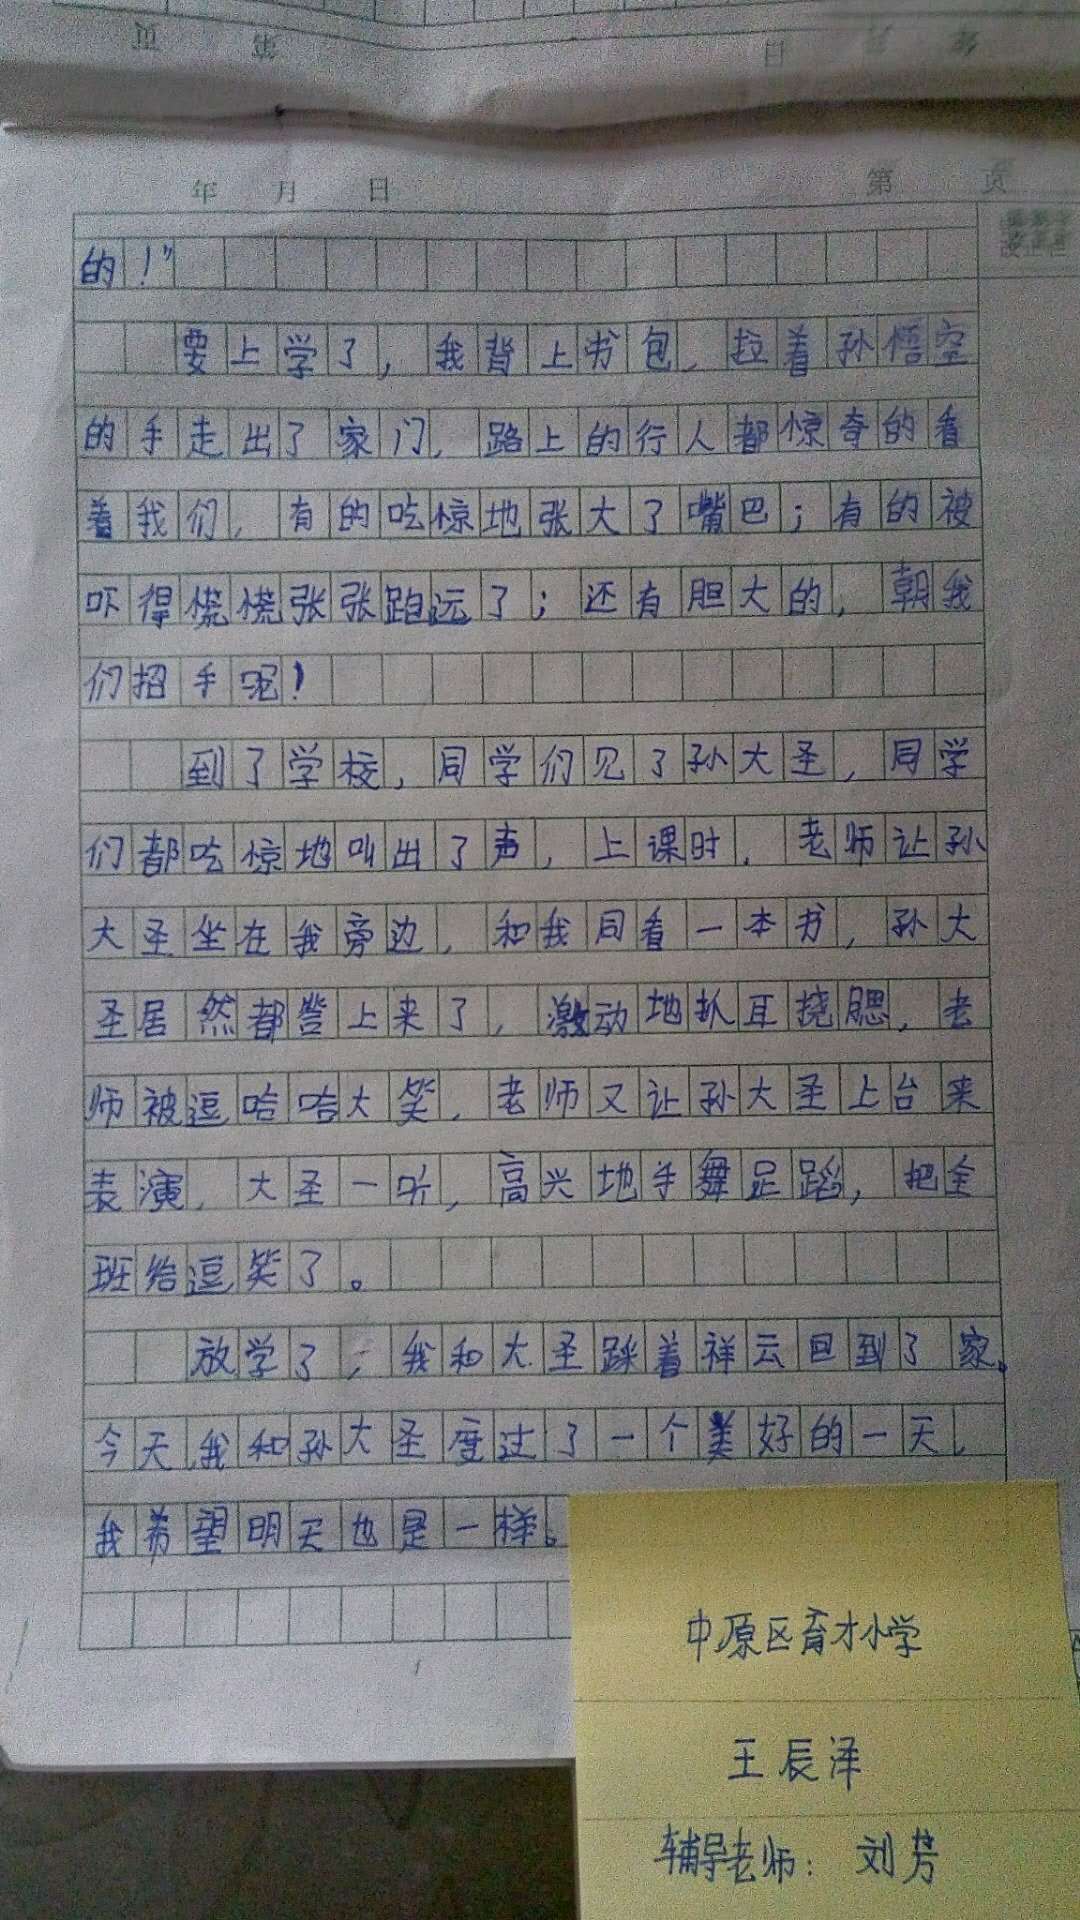 年 月 日 第 页
的！”
要上学了，我背上书包，拉着孙悟空
的手走出了家门，路上的行人都惊奇的看
着我们，有的吃惊地张大了嘴巴；有的被
吓得慌慌张张跑远了；还有胆大的，朝我
们招手呢！
到了学校，同学们见了孙大圣，同学
们都吃惊地叫出了声，上课时，老师让孙
大圣坐在我旁边，和我同看一本书，孙大
圣居然都答上来了，激动地扒耳挠腮，老
师被逗哈哈大笑，老师又让孙大圣上台来
表演，大圣一听，高兴地手舞足蹈，把全
班给逗笑了。
放学了，我和大圣踩着祥云回到了家。
今天，我和孙大圣度过了一个美好的一天，
我希望明天也是一样。
中原区育才小学
王辰泽
辅导老师：刘芳